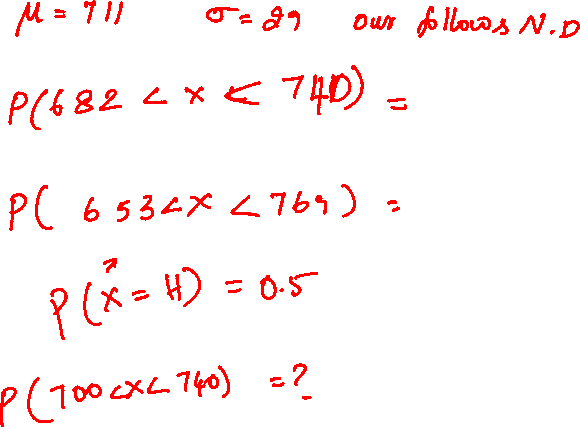 μ = 711 σ = 29 our follows N.D
P(682 < x < 740) =
P( 653 < x < 769) =
P(x = H) = 0.5
P(700 < x < 740) = ?